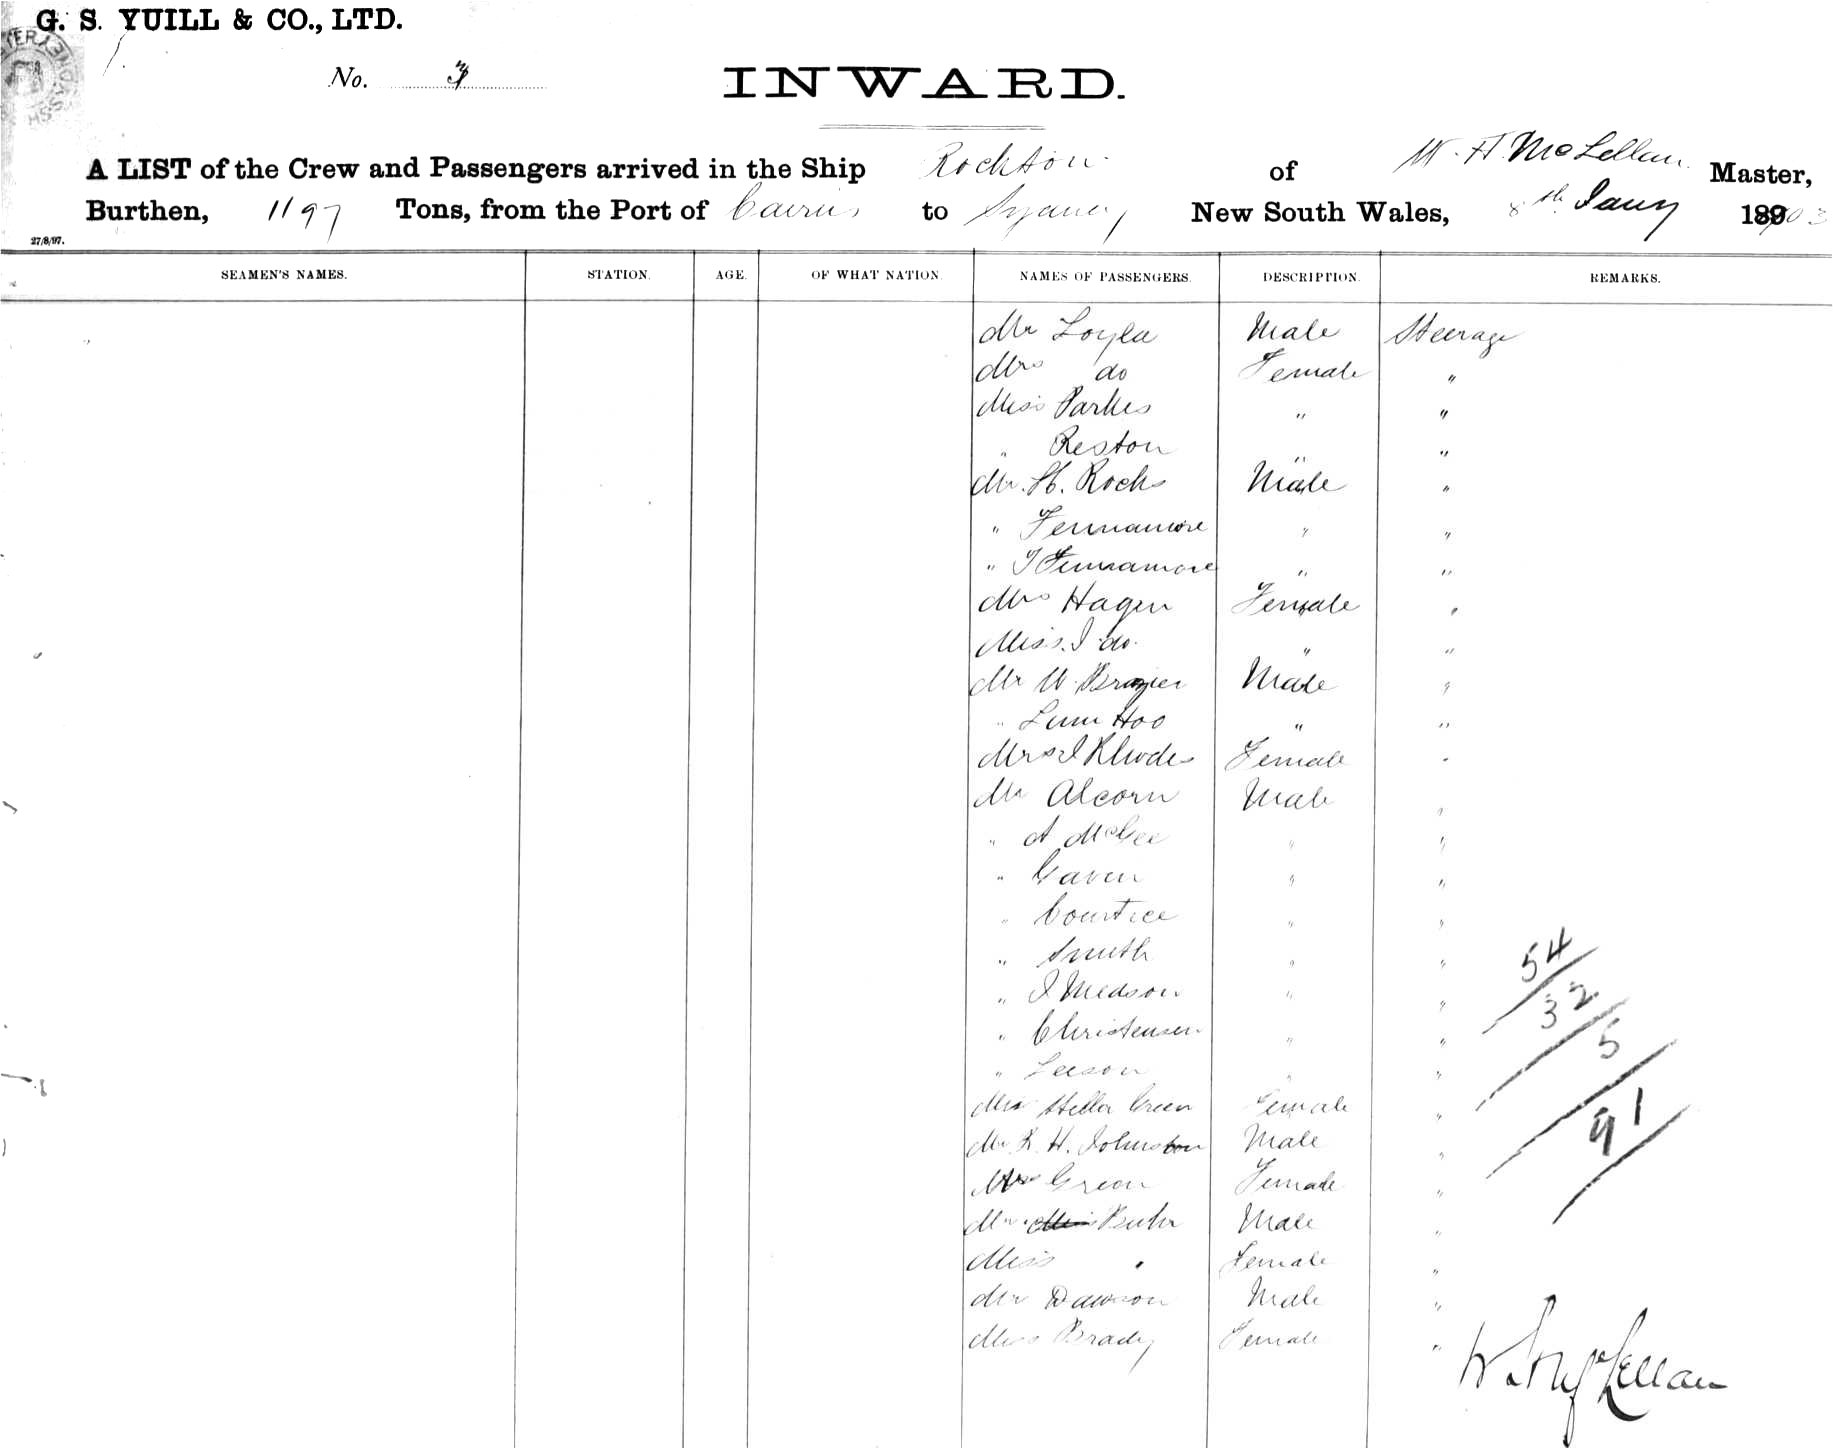 G. S. YUILL & CO., LTD.
No. 3
INWARD.
A LIST of the Crew and Passengers arrived in the Ship Rockton of W. H. McLellan Master,
Burthen, 1197 Tons, from the Port of Cairns to Sydney New South Wales, 8th Jany 1903
27/8/97.
SEAMEN'S NAMES. STATION. AGE. OF WHAT NATION. NAMES OF PASSENGERS. DESCRIPTION. REMARKS.
Mr Male Steerage
Mrs do Female "
Miss Parkes " "
" Reston " "
Mr. H. Rocks Male "
" Fennamore " "
" J Fennamore " "
Mrs Hagen Female "
Miss. I do. " "
Mr W. Brazier Male "
" Lum Hoo " "
Mrs J Rhodes Female "
Mr Alcorn Male "
" A McGee " "
" Gaven " "
" Courtice " "
" Smith " "
" J Medson " "
" Christensen " "
" Leeson " "
Miss Stella Green Female "
Mr. R. H. Johnston Male "
Mrs Green Female "
Mr. Male "
Miss " Female "
Mr Dawson Male "
Miss Brady Female "
54
32
5
91
McLellan